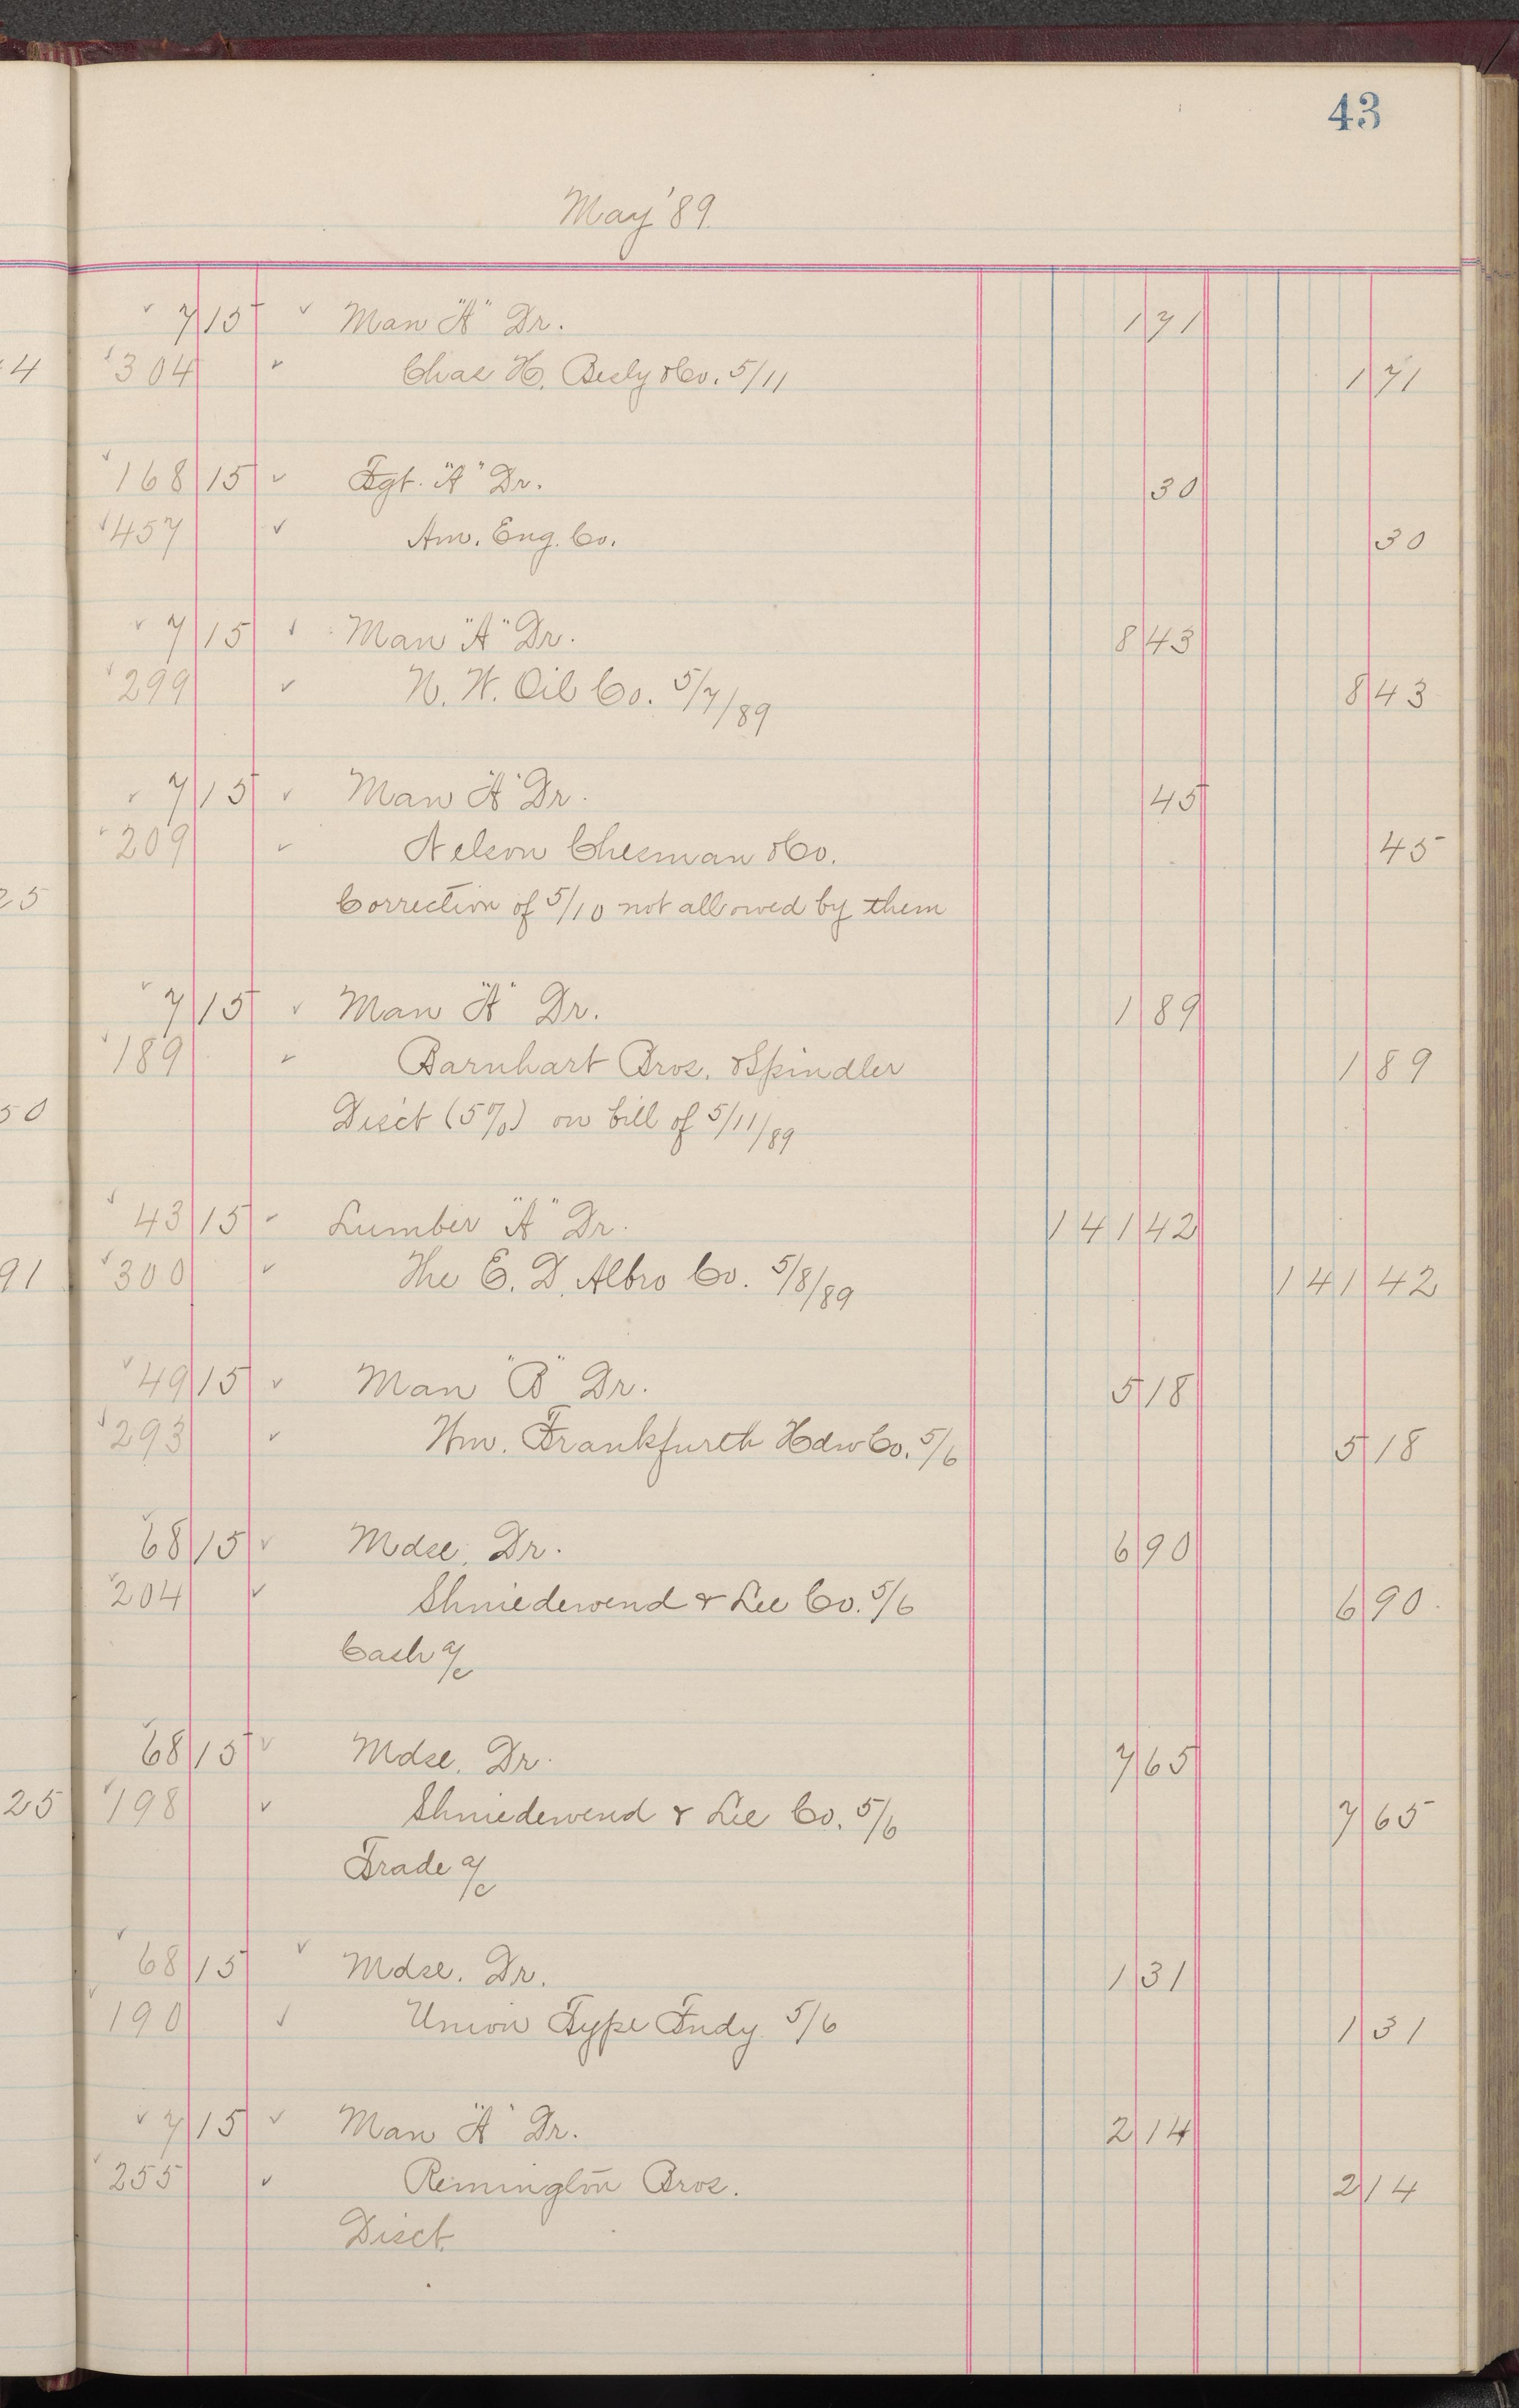 43
May '89
7 15 Man "A" Dr. 1 71
4 304 Chas H. Besly & Co. 5/11 1 71
168 15 Fgt. "A" Dr. 30
457 Am. Eng. Co. 30
7 15 Man "A" Dr. 8 43
299 N. W. Oil Co. 5/7/89 8 43
7 15 Man "A" Dr. 45
209 Nelson Chesman & Co. 45
25 Correction of 5/10 not allowed by them
7 15 Man "A" Dr. 1 89
189 Barnhart Bros. & Spindler 1 89
50 Disct (5%) on bill of 5/11/89
43 15 Lumber "A" Dr. 141 42
91 300 The E. D. Albro Co. 5/8/89 141 42
49 15 Man "B" Dr. 5 18
293 Wm. Frankfurth Hdw Co. 5/6 5 18
68 15 Mdse. Dr. 6 90
204 Shniedewend & Lee Co. 5/6 6 90
Cash a/c
68 15 Mdse. Dr. 7 65
25 198 Shniedewend & Lee Co. 5/6 7 65
Trade a/c
68 15 Mdse. Dr. 1 31
190 Union Type Fndy 5/6 1 31
7 15 Man "A" Dr. 2 14
255 Remington Bros. 2 14
Disct.